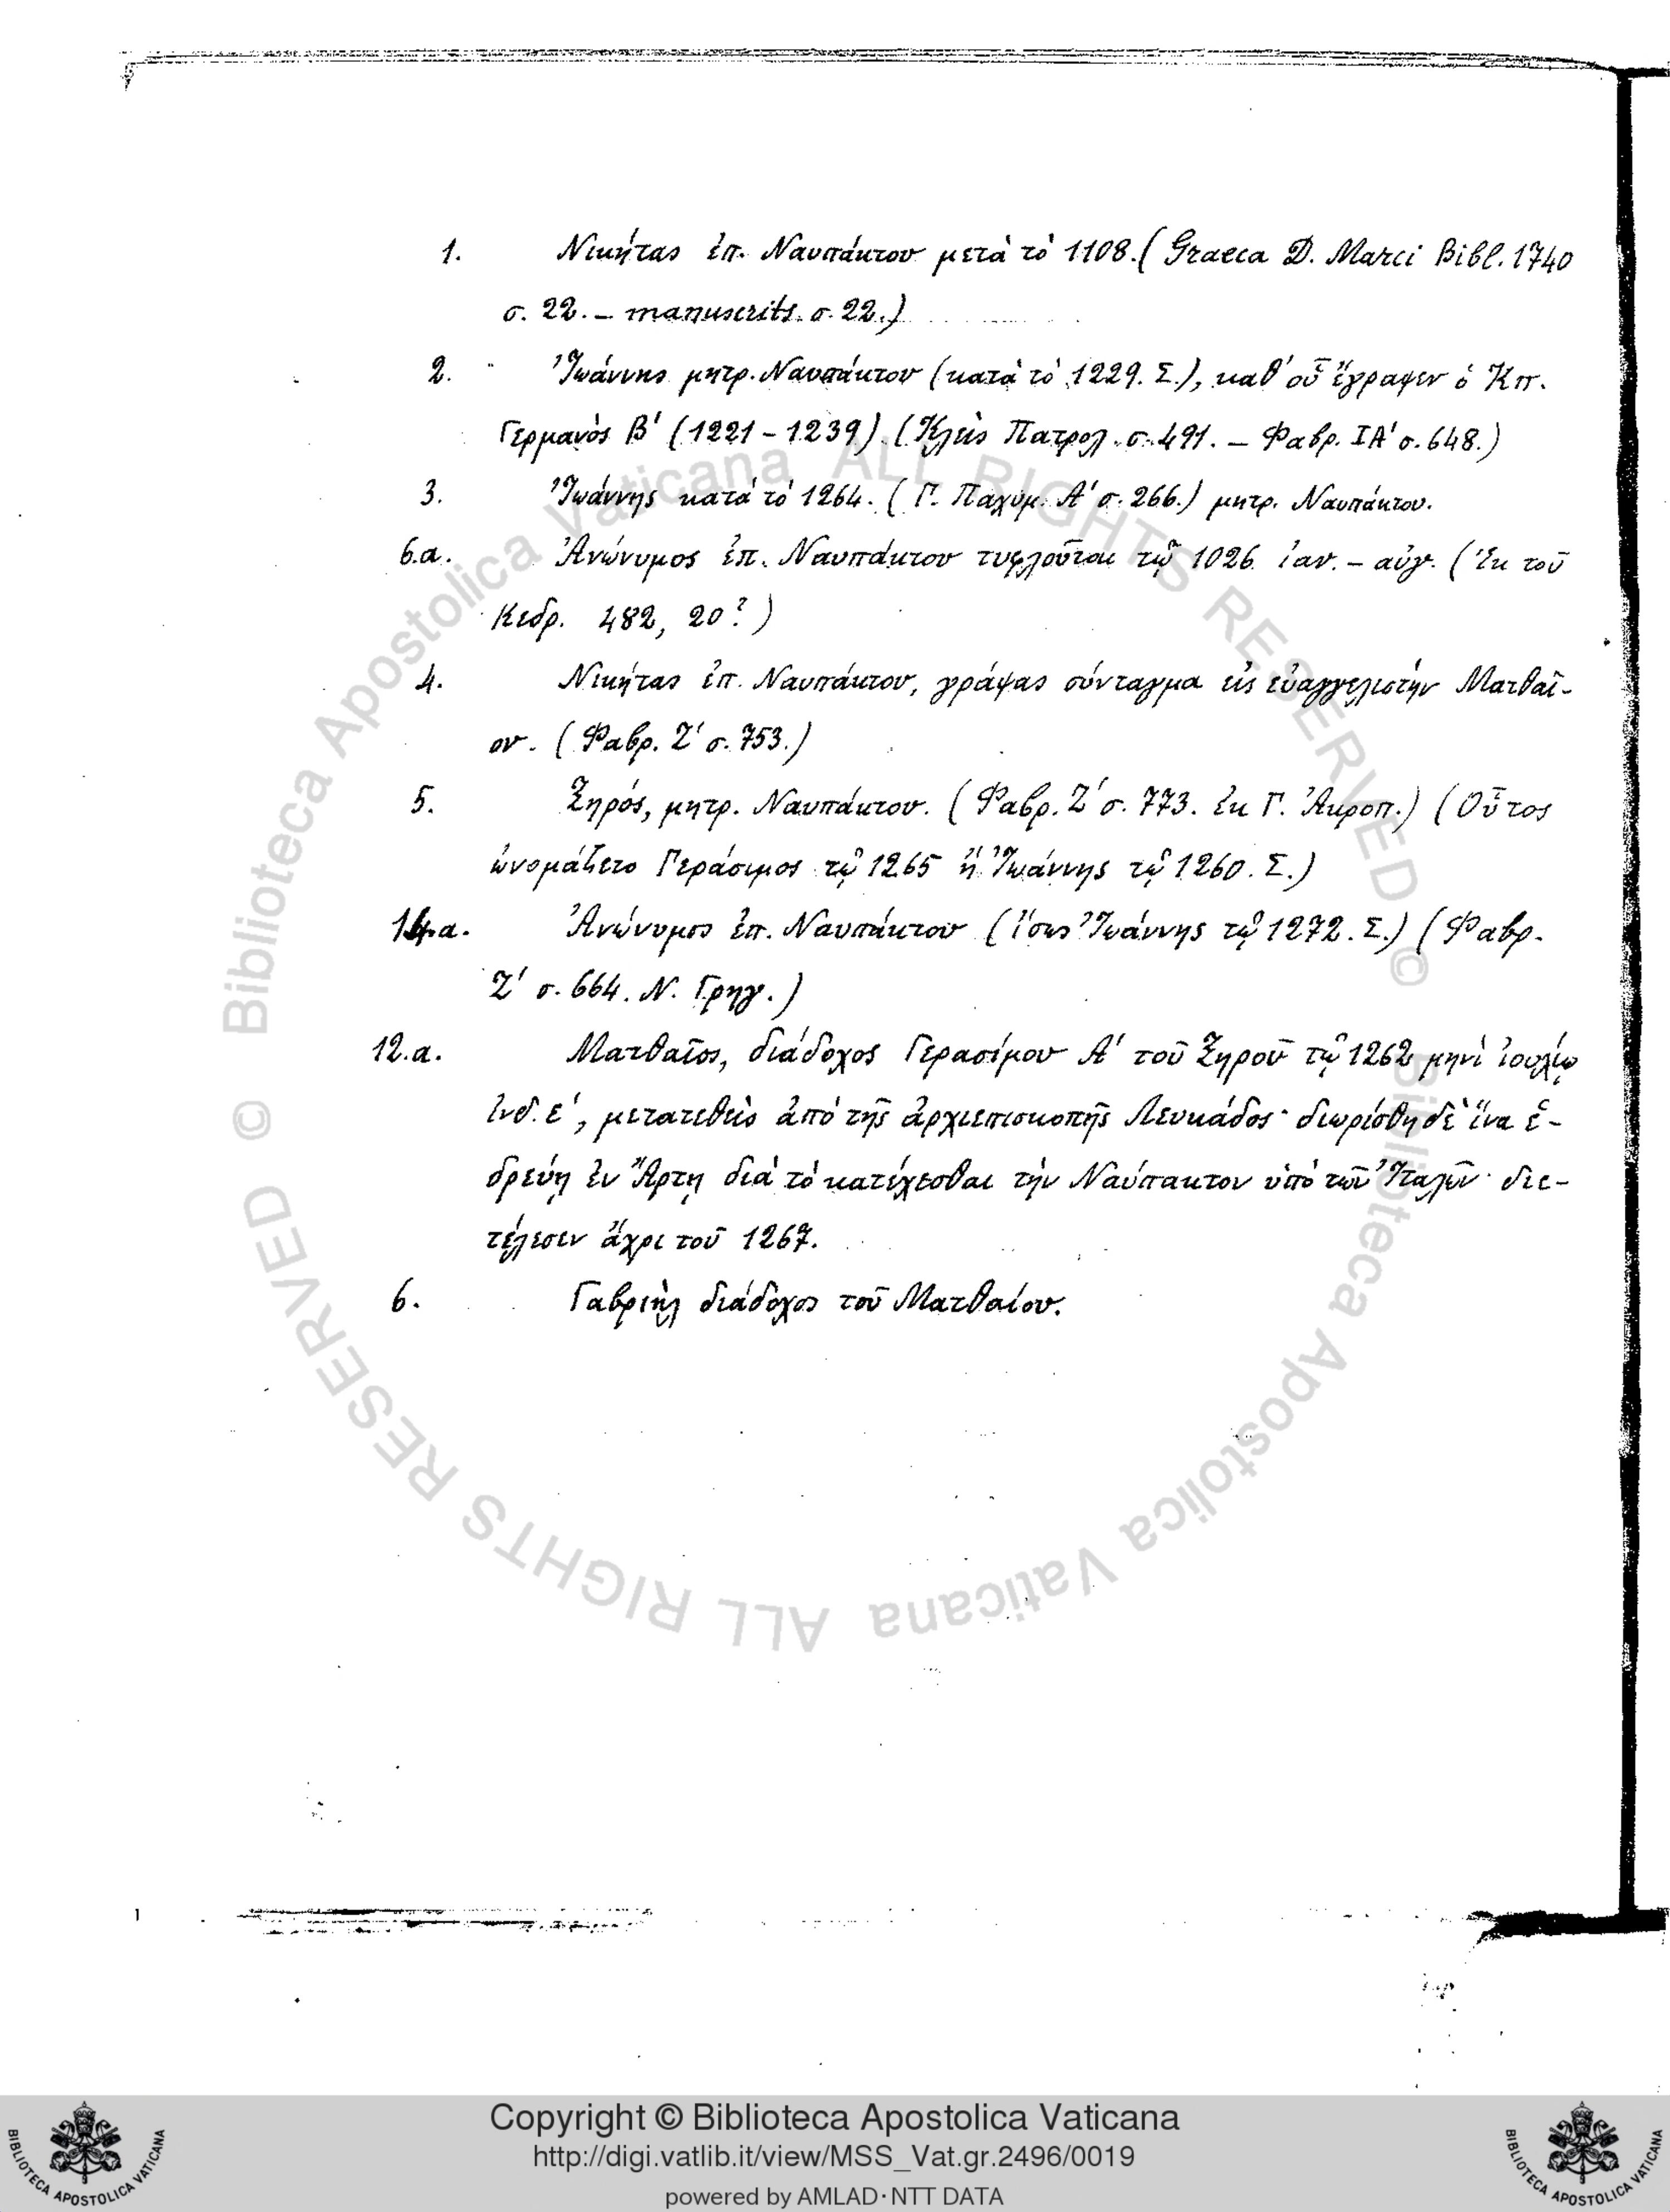 1. Νικήτας ἐπ. Ναυπάκτου μετὰ τὸ 1108. (Graeca D. Marci Bibl. 1740
σ. 22. – manuscrits. σ. 22.)
2. Ἰωάννης μητρ. Ναυπάκτου (κατὰ τὸ 1229. Σ.), καθ' οὗ ἔγραφεν ὁ Κπ.
Γερμανὸς Β' (1221 - 1239). (Κλεὶς Πατρολ. σ. 491. – Φαβρ. ΙΑ' σ. 648.)
3. Ἰωάννης κατὰ τὸ 1264. (Γ. Παχυμ. Α' σ. 266.) μητρ. Ναυπάκτου.
6.α. Ἀνώνυμος ἐπ. Ναυπάκτου τυφλοῦται τῷ 1026 ἰαν. – αὐγ. (Ἐκ τοῦ
Κεδρ. 482, 20?)
4. Νικήτας ἐπ. Ναυπάκτου, γράψας σύνταγμα εἰς εὐαγγελιστὴν Ματθαῖ-
ον. (Φαβρ. Ζ' σ. 753.)
5. Ξηρός, μητρ. Ναυπάκτου. (Φαβρ. Ζ' σ. 773. ἐκ Γ. Ἀκροπ.) (Οὗτος
ὠνομάζετο Γεράσιμος τῷ 1265 ἢ Ἰωάννης τῷ 1260. Σ.)
14.α. Ἀνώνυμος ἐπ. Ναυπάκτου (ἴσως Ἰωάννης τῷ 1272. Σ.) (Φαβρ.
Ζ' σ. 664. Ν. Γρηγ.)
12.α. Ματθαῖος, διάδοχος Γερασίμου Α' τοῦ Ξηροῦ τῷ 1262 μηνὶ ἰουλίῳ
ἰνδ. ε', μετατεθεὶς ἀπὸ τῆς ἀρχιεπισκοπῆς Λευκάδος· διωρίσθη δὲ ἵνα ἑ-
δρεύῃ ἐν Ἄρτῃ διὰ τὸ κατέχεσθαι τὴν Ναύπακτον ὑπὸ τῶν Ἰταλῶν· διε-
τέλεσεν ἄχρι τοῦ 1267.
6. Γαβριὴλ διάδοχος τοῦ Ματθαίου.
© Biblioteca Apostolica Vaticana ALL RIGHTS RESERVED
© Biblioteca Apostolica Vaticana ALL RIGHTS RESERVED
Copyright © Biblioteca Apostolica Vaticana
http://digi.vatlib.it/view/MSS_Vat.gr.2496/0019
powered by AMLAD·NTT DATA
BIBLIOTECA APOSTOLICA VATICANA
BIBLIOTECA APOSTOLICA VATICANA